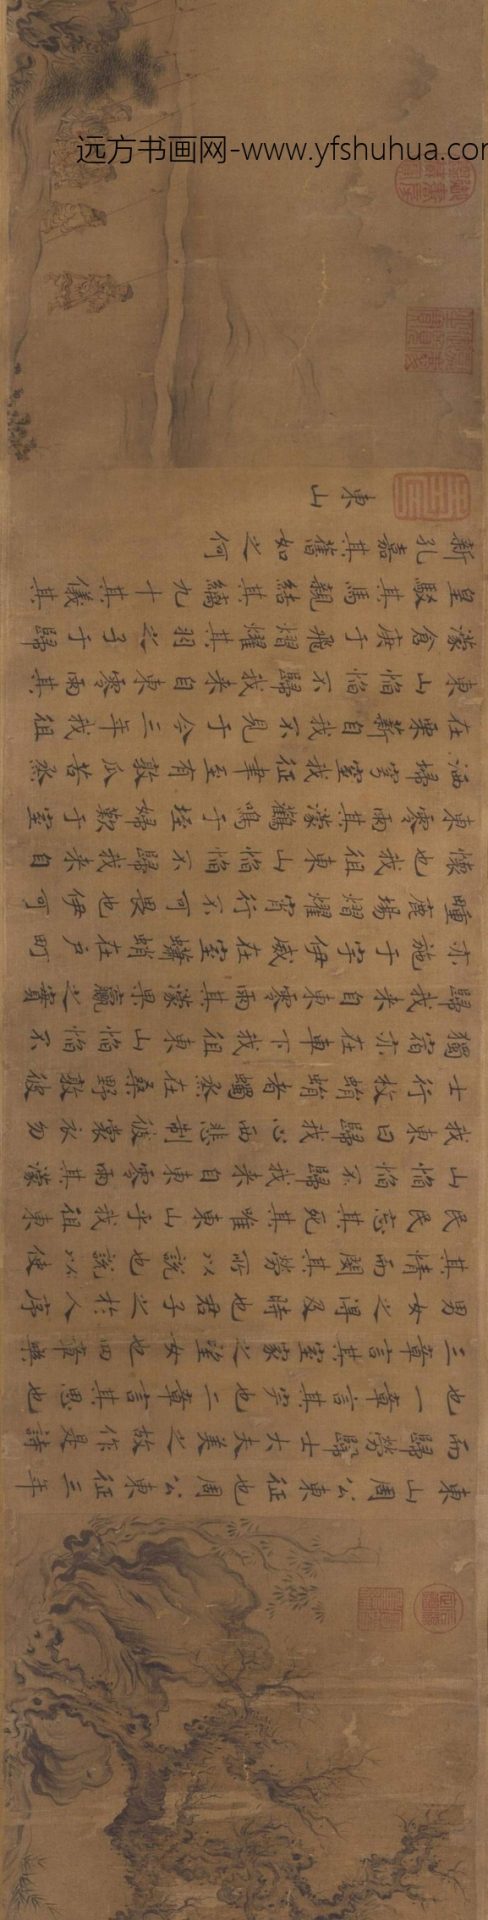 远方书画网-www.yfshuhua.com
東山周公東征也周公東征三年
而歸勞歸士大夫美之故作是詩
也一章言其完也二章言其思也
三章言其室家之望女也四章樂
男女之得及時也君子之於人序
其情而閔其勞所以說也說以使
民民忘其死其唯東山乎我徂東
山慆慆不歸我来自東零雨其濛
我東曰歸我心西悲制彼裳衣勿
士行枚蜎蜎者蠋烝在桑野敦彼
獨宿亦在車下我徂東山慆慆不
歸我来自東零雨其濛果臝之實
亦施于宇伊威在室蠨蛸在戶町
畽鹿場熠燿宵行不可畏也伊可
懷也我徂東山慆慆不歸我来自
東零雨其濛鸛鳴于垤婦歎于室
洒埽穹窒我征聿至有敦瓜苦烝
在栗薪自我不見于今三年我徂
東山慆慆不歸我来自東零雨其
濛倉庚于飛熠燿其羽之子于歸
皇駁其馬親結其縭九十其儀其
新孔嘉其舊如之何
東山